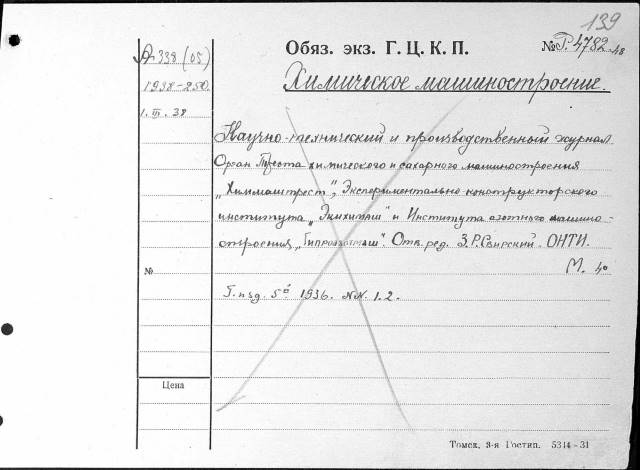 139
Обяз. экз. Г. Ц. К. П.
№ Р. 4782 48
А 338 (05)
1938-250
1. III. 38
Химическое машиностроение.
Научно-технический и производственный журнал.
Орган Треста химического и сахарного машиностроения
„Химмаштрест", Экспериментально конструкторского
института „Экихиммаш" и Института азотного машино-
строения „Гипроазотмаш". Отв. ред. З.Р. Свирский. ОНТИ.
М. 40
№
Г. изд. 5й 1936. NN. 1. 2.
Цена
Томск, 3-я Гостип. 5314-31